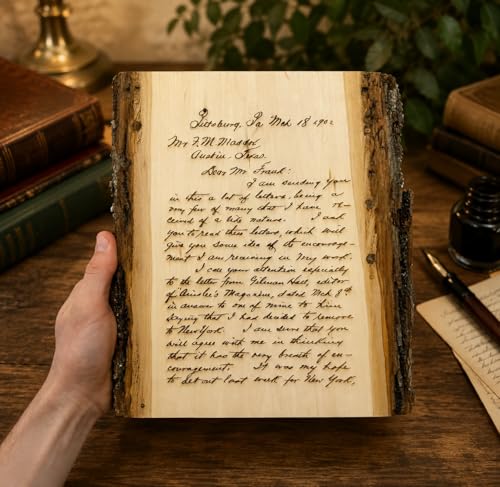 Pittsburg, Pa Mch 18 1902
Mr F. M. Maddox
Austin, Texas.
Dear Mr Frank:
I am sending you
in this a lot of letters, being a
very few of many that I have re-
ceived of a like nature. I ask
you to read these letters, which will
give you some idea of the encourage-
ment I am receiving in my work.
I call your attention especially
to the letter from Gilman Hall, editor
of Ainslee's Magazine, dated Mch 8th
in answer to one of mine to him
saying that I had decided to remove
to New York. I am sure that you
will agree with me in thinking
that it has the very breath of en-
couragement. It was my hope
to set out last week for New York,